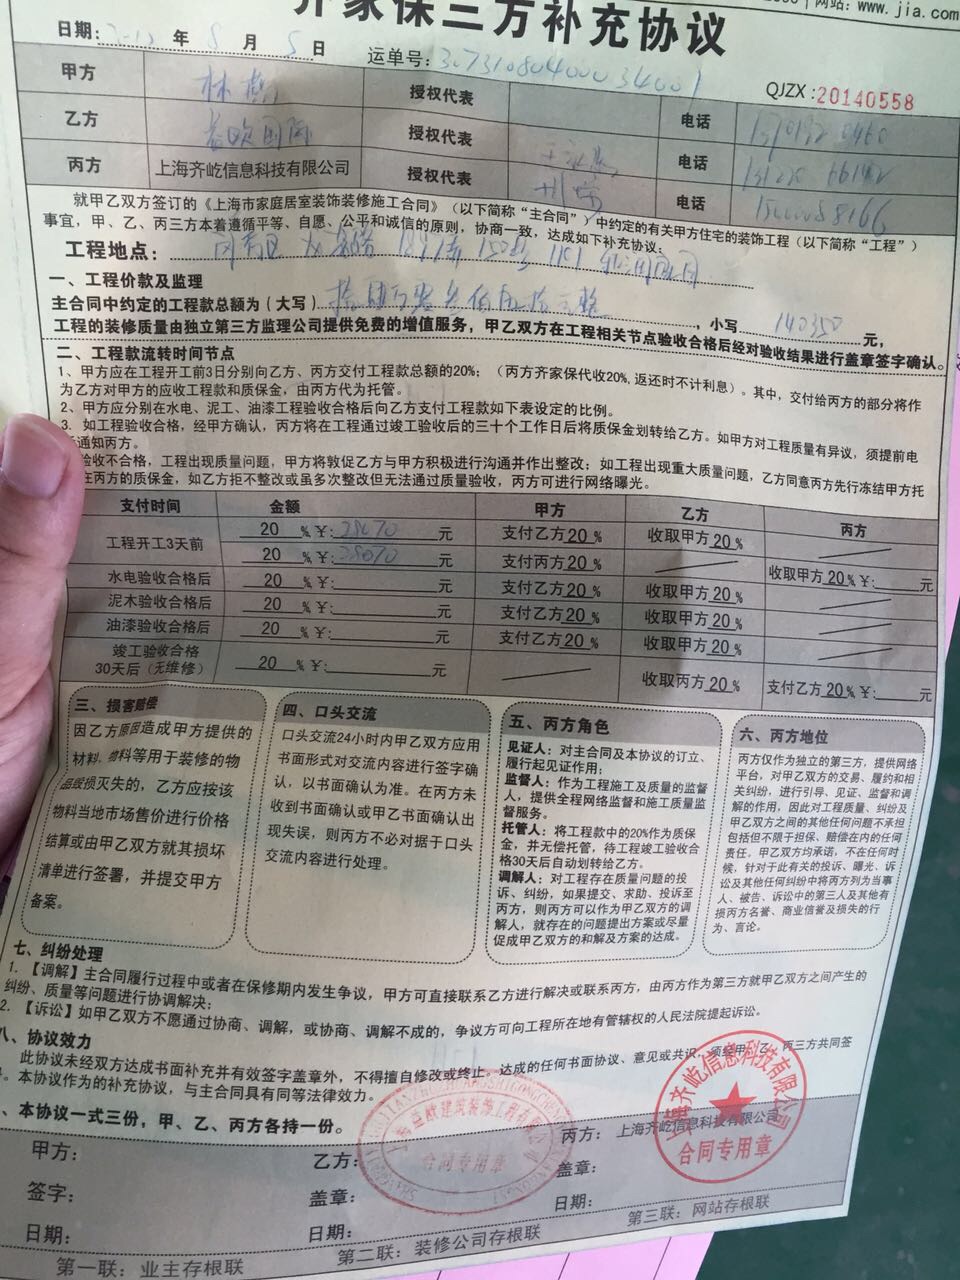 网站:www.jia.com
齐家保三方补充协议
日期: 年 8 月 5 日 运单号:
QJZX:20140558
甲方 林 授权代表 电话
乙方 益欧国际 授权代表 电话
丙方 上海齐屹信息科技有限公司 授权代表 电话
就甲乙双方签订的《上海市家庭居室装饰装修施工合同》(以下简称“主合同”)中约定的有关甲方住宅的装饰工程(以下简称“工程”)
事宜,甲、乙、丙三方本着遵循平等、自愿、公平和诚信的原则,协商一致,达成如下补充协议:
工程地点:
一、工程价款及监理
主合同中约定的工程款总额为(大写) ,小写 140350 元,
工程的装修质量由独立第三方监理公司提供免费的增值服务,甲乙双方在工程相关节点验收合格后经对验收结果进行盖章签字确认。
二、工程款流转时间节点
1、甲方应在工程开工前3日分别向乙方、丙方交付工程款总额的20%;(丙方齐家保代收20%,返还时不计利息)。其中,交付给丙方的部分将作
为乙方对甲方的应收工程款和质保金,由丙方代为托管。
2、甲方应分别在水电、泥工、油漆工程验收合格后向乙方支付工程款如下表设定的比例。
3、如工程验收合格,经甲方确认,丙方将在工程通过竣工验收后的三十个工作日后将质保金划转给乙方。如甲方对工程质量有异议,须提前电
通知丙方。
验收不合格,工程出现质量问题,甲方将敦促乙方与甲方积极进行沟通并作出整改;如工程出现重大质量问题,乙方同意丙方先行冻结甲方托
在丙方的质保金,如乙方拒不整改或虽多次整改但无法通过质量验收,丙方可进行网络曝光。
支付时间 金额 甲方 乙方 丙方
工程开工3天前 20 %¥:28070 元 支付乙方20% 收取甲方20%
20 %¥:28070 元 支付丙方20% 收取甲方20%¥: 元
水电验收合格后 20 %¥: 元 支付乙方20% 收取甲方20%
泥木验收合格后 20 %¥: 元 支付乙方20% 收取甲方20%
油漆验收合格后 20 %¥: 元 支付乙方20% 收取甲方20%
竣工验收合格
30天后(无维修) 20 %¥: 元 收取丙方20% 支付乙方20%¥: 元
三、损害赔偿
因乙方原因造成甲方提供的
材料、物料等用于装修的物
品毁损灭失的,乙方应按该
物料当地市场售价进行价格
结算或由甲乙双方就其损坏
清单进行签署,并提交甲方
备案。
四、口头交流
口头交流24小时内甲乙双方应用
书面形式对交流内容进行签字确
认,以书面确认为准。在丙方未
收到书面确认或甲乙书面确认出
现失误,则丙方不必对据于口头
交流内容进行处理。
五、丙方角色
见证人:对主合同及本协议的订立、
履行起见证作用;
监督人:作为工程施工及质量的监督
人,提供全程网络监督和施工质量监
督服务。
托管人:将工程款中的20%作为质保
金,并无偿托管,待工程竣工验收合
格30天后自动划转给乙方。
调解人:对工程存在质量问题的投
诉、纠纷,如果提交、求助、投诉至
丙方,则丙方可以作为甲乙双方的调
解人,就存在的问题提出方案或尽量
促成甲乙双方的和解及方案的达成。
六、丙方地位
丙方仅作为独立的第三方,提供网络
平台,对甲乙双方的交易、履约和相
关纠纷,进行引导、见证、监督和调
解的作用,因此对工程质量、纠纷及
甲乙双方之间的其他任何问题不承担
包括但不限于担保、赔偿在内的任何
责任,甲乙双方均承诺,不在任何时
候,针对于此有关的投诉、曝光、诉
讼及其他任何纠纷中将丙方列为当事
人、被告、诉讼中的第三人及其他有
损丙方名誉、商业信誉及损失的行
为、言论。
七、纠纷处理
1、【调解】主合同履行过程中或者在保修期内发生争议,甲方可直接联系乙方进行解决或联系丙方,由丙方作为第三方就甲乙双方之间产生的
纠纷、质量等问题进行协调解决;
2、【诉讼】如甲乙双方不愿通过协商、调解,或协商、调解不成的,争议方可向工程所在地有管辖权的人民法院提起诉讼。
八、协议效力
此协议未经双方达成书面补充并有效签字盖章外,不得擅自修改或终止。达成的任何书面协议、意见或共识,须经甲、乙、丙三方共同签
。本协议作为的补充协议,与主合同具有同等法律效力。
、本协议一式三份,甲、乙、丙方各持一份。
甲方: 乙方: 丙方:上海齐屹信息科技有限公司
签字: 盖章: 盖章:
日期: 日期: 日期:
第一联:业主存根联 第二联:装修公司存根联 第三联:网站存根联
上海益欧建筑装饰工程有限公司
合同专用章
上海齐屹信息科技有限公司
合同专用章